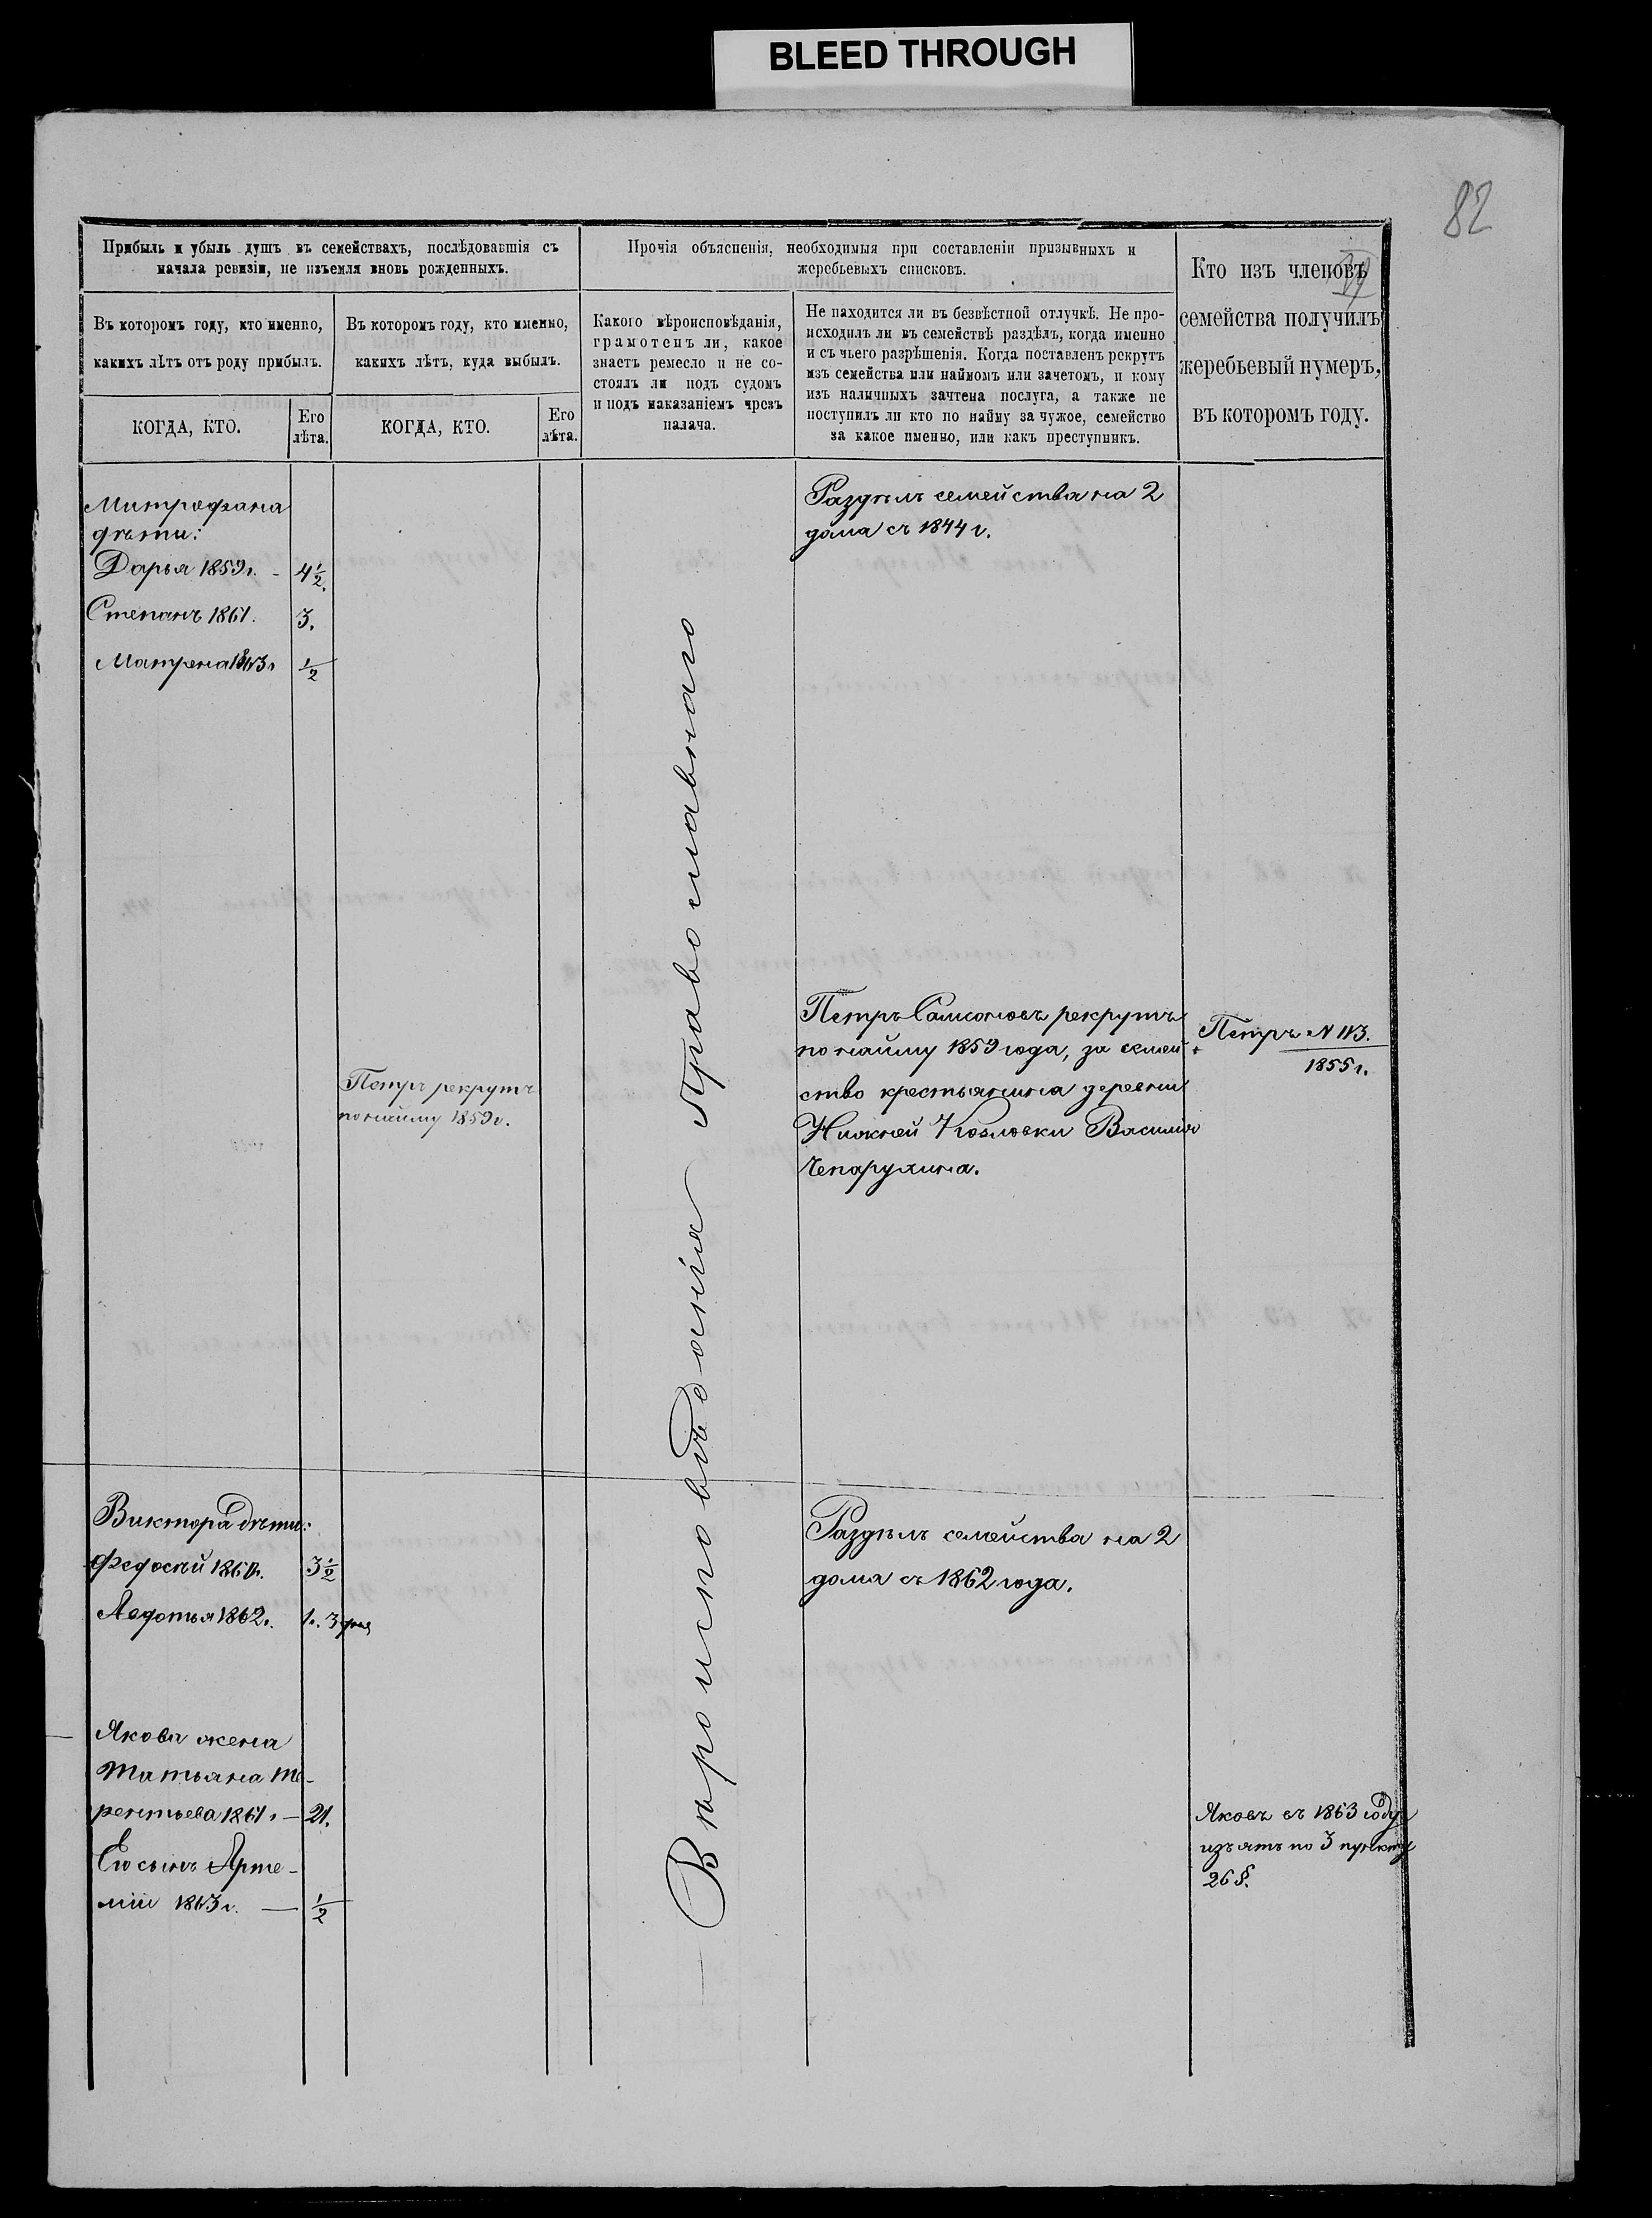 BLEED THROUGH
82
Прибыль и убыль душъ въ семействахъ, послѣдовавшія съ
начала ревизіи, не изъемля вновь рожденныхъ.
Въ которомъ году, кто именно,
какихъ лѣтъ отъ роду прибылъ.
КОГДА, КТО.
Его
лѣта.
Въ которомъ году, кто именно,
какихъ лѣтъ, куда выбылъ.
КОГДА, КТО.
Его
лѣта.
Прочія объясненія, необходимыя при составленіи призывныхъ и
жеребьевыхъ списковъ.
Какого вѣроисповѣданія,
грамотенъ ли, какое
знаетъ ремесло и не со-
стоялъ ли подъ судомъ
и подъ наказаніемъ чрезъ
палача.
Не находится ли въ безвѣстной отлучкѣ. Не про-
исходилъ ли въ семействѣ раздѣлъ, когда именно
и съ чьего разрѣшенія. Когда поставленъ рекрутъ
изъ семейства или наймомъ или зачетомъ, и кому
изъ наличныхъ зачтена послуга, а также не
поступилъ ли кто по найму за чужое, семейство
за какое именно, или какъ преступникъ.
Кто изъ членовъ
семейства получилъ
жеребьевый нумеръ,
въ которомъ году.
Митрофана
дѣти:
Дарья 1859г. - 4 1/2.
Степанъ 1861. 3.
Матрена 1863г 1/2
Раздѣлъ семейства на 2
дома съ 1844 г.
Петръ рекрутъ
по найму 1859г.
Петръ Самсоновъ рекрутъ
по найму 1859 года, за семей-
ство крестьянина деревни
Нижней Козловки Василия
Чепарухина.
Петръ N 113.
1855г.
Вѣроисповѣданія Православнаго
Виктора дѣти:
Федосѣй 1860г. 3 1/2
Авдотья 1862г. 1. 3
Раздѣлъ семейства на 2
дома съ 1862 года.
Якова жена
Татьяна Те-
рентьева 1861г — 21.
Его сынъ Арте-
мій 1863г. — 1/2
Яковъ въ 1863 году
изъятъ по 3 пункту
26 §.